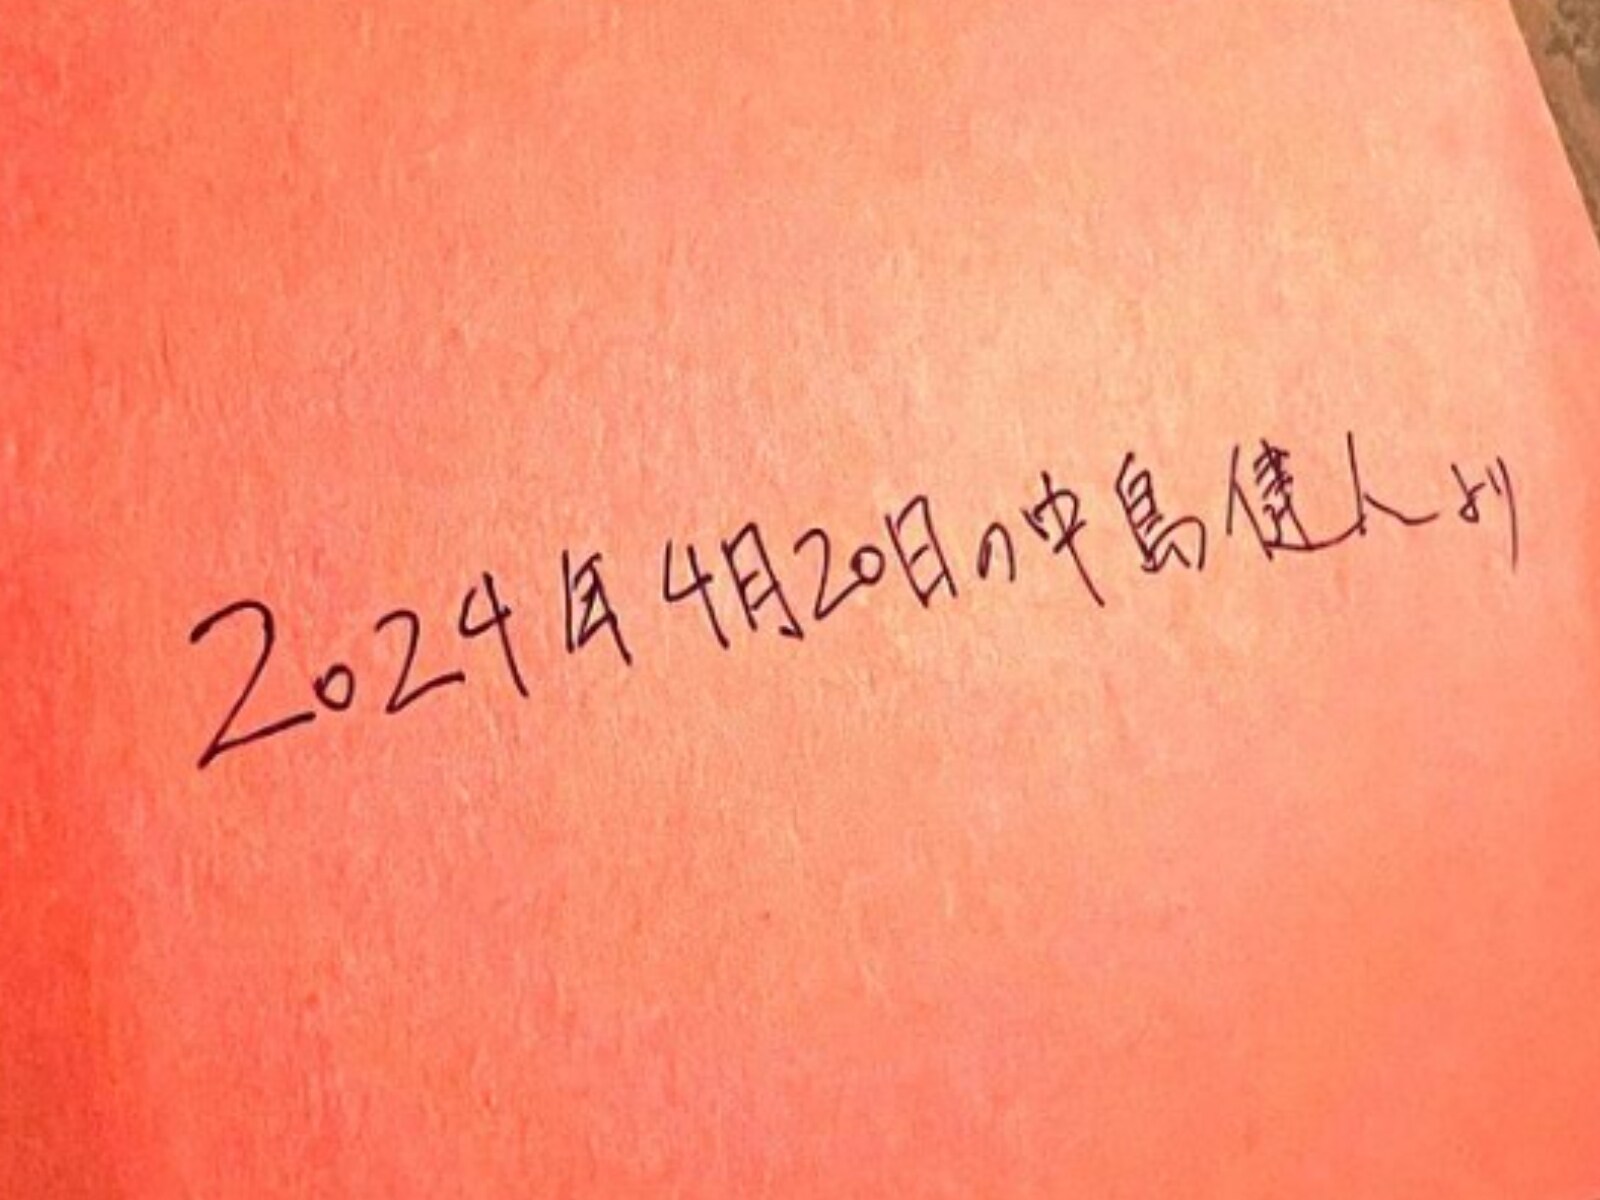 2024年4月20日の中島健人より